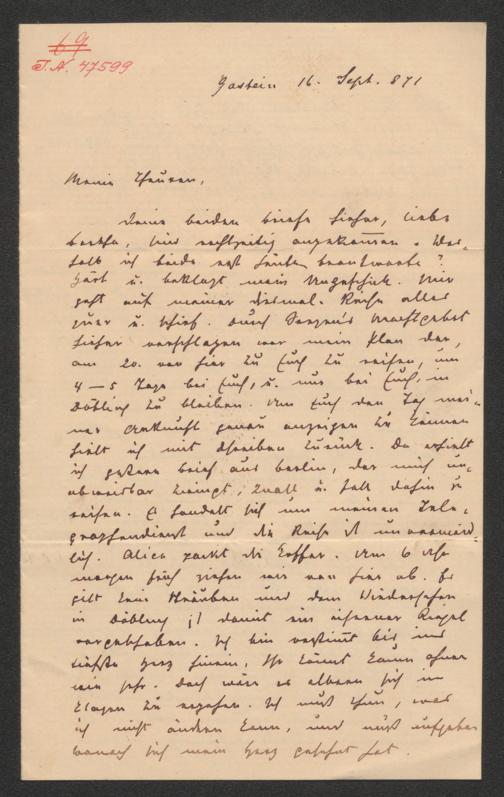 69
I.N. 47599
Gastein 16. Sept. 871
Meine Theuren,
Deine beiden Briefe hieher, liebe
Bertha, sind rechtzeitig angekommen. Wes-
halb ich beide erst heute beantworte?
Hört u. beklagt mein Ungeschick. Mir
geht auf meiner Reise alles
quer u. schief. Durch Machtgebot
hieher verschlagen war mein Plan der,
am 20. von hier zu Euch zu reisen, um
4 — 5 Tage bei Euch, u. nur bei Euch, in
Döbling zu bleiben. Um Euch den Tag mei-
ner Ankunft genau anzeigen zu können
hielt ich mit Schreiben zurück. Da erhielt
ich gestern Brief aus Berlin, der mich un-
abweisbar zwingt, Knall u. Fall dahin zu
reisen. Es handelt sich um meinen Tele-
graphendienst und die Reise ist unvermeid-
lich. Alice packt die Koffer. Um 6 Uhr
morgen früh ziehen wir von hier ab. Es
gilt kein Sträuben und dem Wiedersehen
in Döbling ist damit ein eiserner Riegel
vorgeschoben. Ich bin verstimmt bis ins
tiefste Herz hinein, Ihr könnt kaum ahnen
wie sehr. Doch wäre es albern sich in
Klagen zu ergehen. Ich muß thun, was
ich nicht ändern kann, und muß aufgeben
wonach sich mein Herz gesehnt hat.